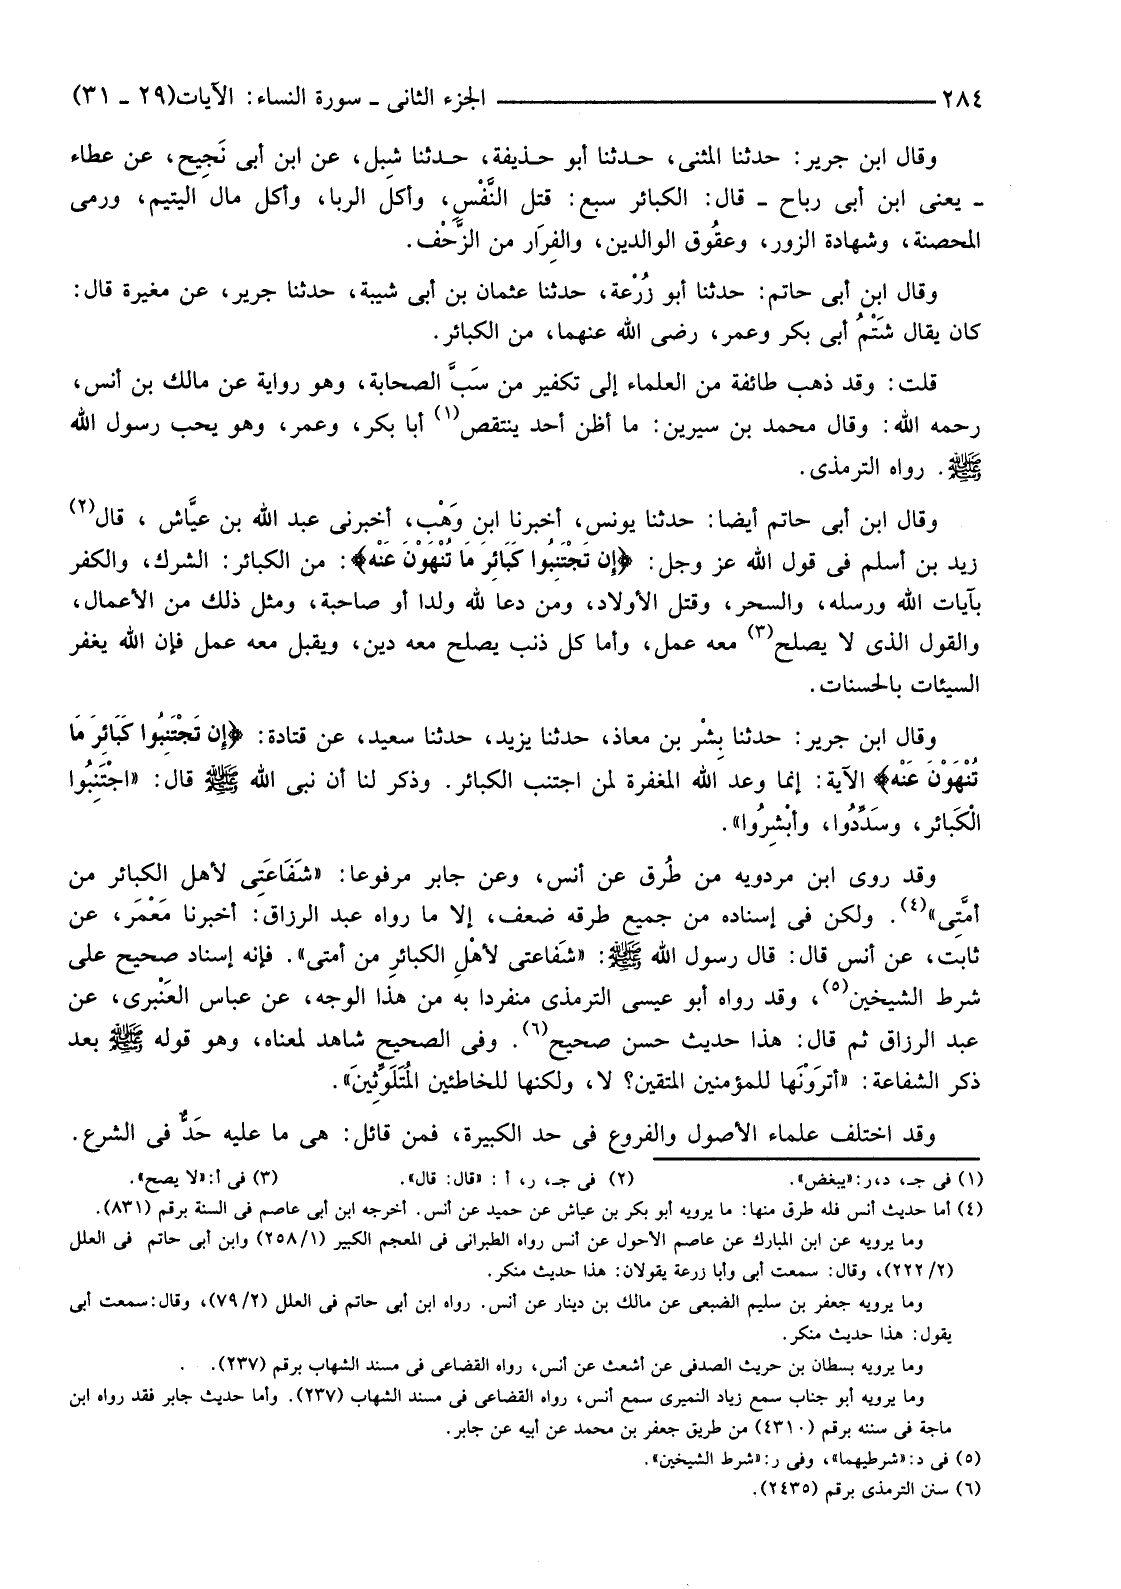 ٢٨٤ ــــــــــــــــــــ الجزء الثانى ـ سورة النساء: الآيات(٢٩ ـ ٣١)
وقال ابن جرير: حدثنا المثنى، حـدثنا أبو حـذيفة، حـدثنا شِبل، عن ابن أبى نَجِيح، عن عطاء
ـ يعنى ابن أبى رباح ـ قال: الكبائر سبع: قتل النَّفْسِ، وأكل الربا، وأكل مال اليتيم، ورمى
المحصنة، وشهادة الزور، وعقُوق الوالدين، والفِرَار من الزَّحْف.
وقال ابن أبى حاتم: حدثنا أبو زُرْعة، حدثنا عثمان بن أبى شيبة، حدثنا جرير، عن مغيرة قال:
كان يقال شَتْمُ أبى بكر وعمر، رضى الله عنهما، من الكبائر.
قلت: وقد ذهب طائفة من العلماء إلى تكفير من سَبَّ الصحابة، وهو رواية عن مالك بن أنس،
رحمه الله: وقال محمد بن سيرين: ما أظن أحد ينتقص(١) أبا بكر، وعمر، وهو يحب رسول الله
ﷺ. رواه الترمذى.
وقال ابن أبى حاتم أيضا: حدثنا يونس، أخبرنا ابن وَهْب، أخبرنى عبد الله بن عيَّاش ، قال(٢)
زيد بن أسلم فى قول الله عز وجل: ﴿إِن تَجْتَنِبُوا كَبَائِرَ مَا تُنْهَوْنَ عَنْه﴾: من الكبائر: الشرك، والكفر
بآيات الله ورسله، والسحر، وقتل الأولاد، ومن دعا لله ولدا أو صاحبة، ومثل ذلك من الأعمال،
والقول الذى لا يصلح(٣) معه عمل، وأما كل ذنب يصلح معه دين، ويقبل معه عمل فإن الله يغفر
السيئات بالحسنات.
وقال ابن جرير: حدثنا بِشْر بن معاذ، حدثنا يزيد، حدثنا سعيد، عن قتادة: ﴿إِن تَجْتَنِبُوا كَبَائِرَ مَا
تُنْهَوْنَ عَنْه﴾ الآية: إنما وعد الله المغفرة لمن اجتنب الكبائر. وذكر لنا أن نبى الله ﷺ قال: «اجْتَنِبُوا
الْكَبائر، وسَدِّدُوا، وأبْشِرُوا».
وقد روى ابن مردويه من طُرق عن أنس، وعن جابر مرفوعا: «شَفَاعَتِى لأهل الكبائر من
أمَّتِى»(٤). ولكن فى إسناده من جميع طرقه ضعف، إلا ما رواه عبد الرزاق: أخبرنا مَعْمَر، عن
ثابت، عن أنس قال: قال رسول الله ﷺ: «شَفاعتى لأهْلِ الكبائرِ من أمتى». فإنه إسناد صحيح على
شرط الشيخين(٥)، وقد رواه أبو عيسى الترمذى منفردا به من هذا الوجه، عن عباس العَنْبرى، عن
عبد الرزاق ثم قال: هذا حديث حسن صحيح(٦). وفى الصحيح شاهد لمعناه، وهو قوله ﷺ بعد
ذكر الشفاعة: «أترَوْنَها للمؤمنين المتقين؟ لا، ولكنها للخاطئين المُتَلَوِّثِينَ».
وقد اختلف علماء الأصول والفروع فى حد الكبيرة، فمن قائل: هى ما عليه حَدٌّ فى الشرع.
(١) فى جـ، د،ر:«يبغض». (٢) فى جـ، ر، أ : «قال: قال». (٣) فى أ:«لا يصح».
(٤) أما حديث أنس فله طرق منها: ما يرويه أبو بكر بن عياش عن حميد عن أنس. أخرجه ابن أبى عاصم فى السنة برقم (٨٣١).
وما يرويه عن ابن المبارك عن عاصم الأحول عن أنس رواه الطبرانى فى المعجم الكبير (٢٥٨/١) وابن أبى حاتم فى العلل
(٢٢٢/٢)، وقال: سمعت أبى وأبا زرعة يقولان: هذا حديث منكر.
وما يرويه جعفر بن سليم الضبعى عن مالك بن دينار عن أنس. رواه ابن أبى حاتم فى العلل (٧٩/٢)، وقال:سمعت أبى
يقول: هذا حديث منكر.
وما يرويه بسطان بن حريث الصدفى عن أشعث عن أنس، رواه القضاعى فى مسند الشهاب برقم (٢٣٧).
وما يرويه أبو جناب سمع زياد النميرى سمع أنس، رواه القضاعى فى مسند الشهاب (٢٣٧). وأما حديث جابر فقد رواه ابن
ماجة فى سننه برقم (٤٣١٠) من طريق جعفر بن محمد عن أبيه عن جابر.
(٥) فى د:«شرطيهما»، وفى ر:«شرط الشيخين».
(٦) سنن الترمذى برقم (٢٤٣٥).